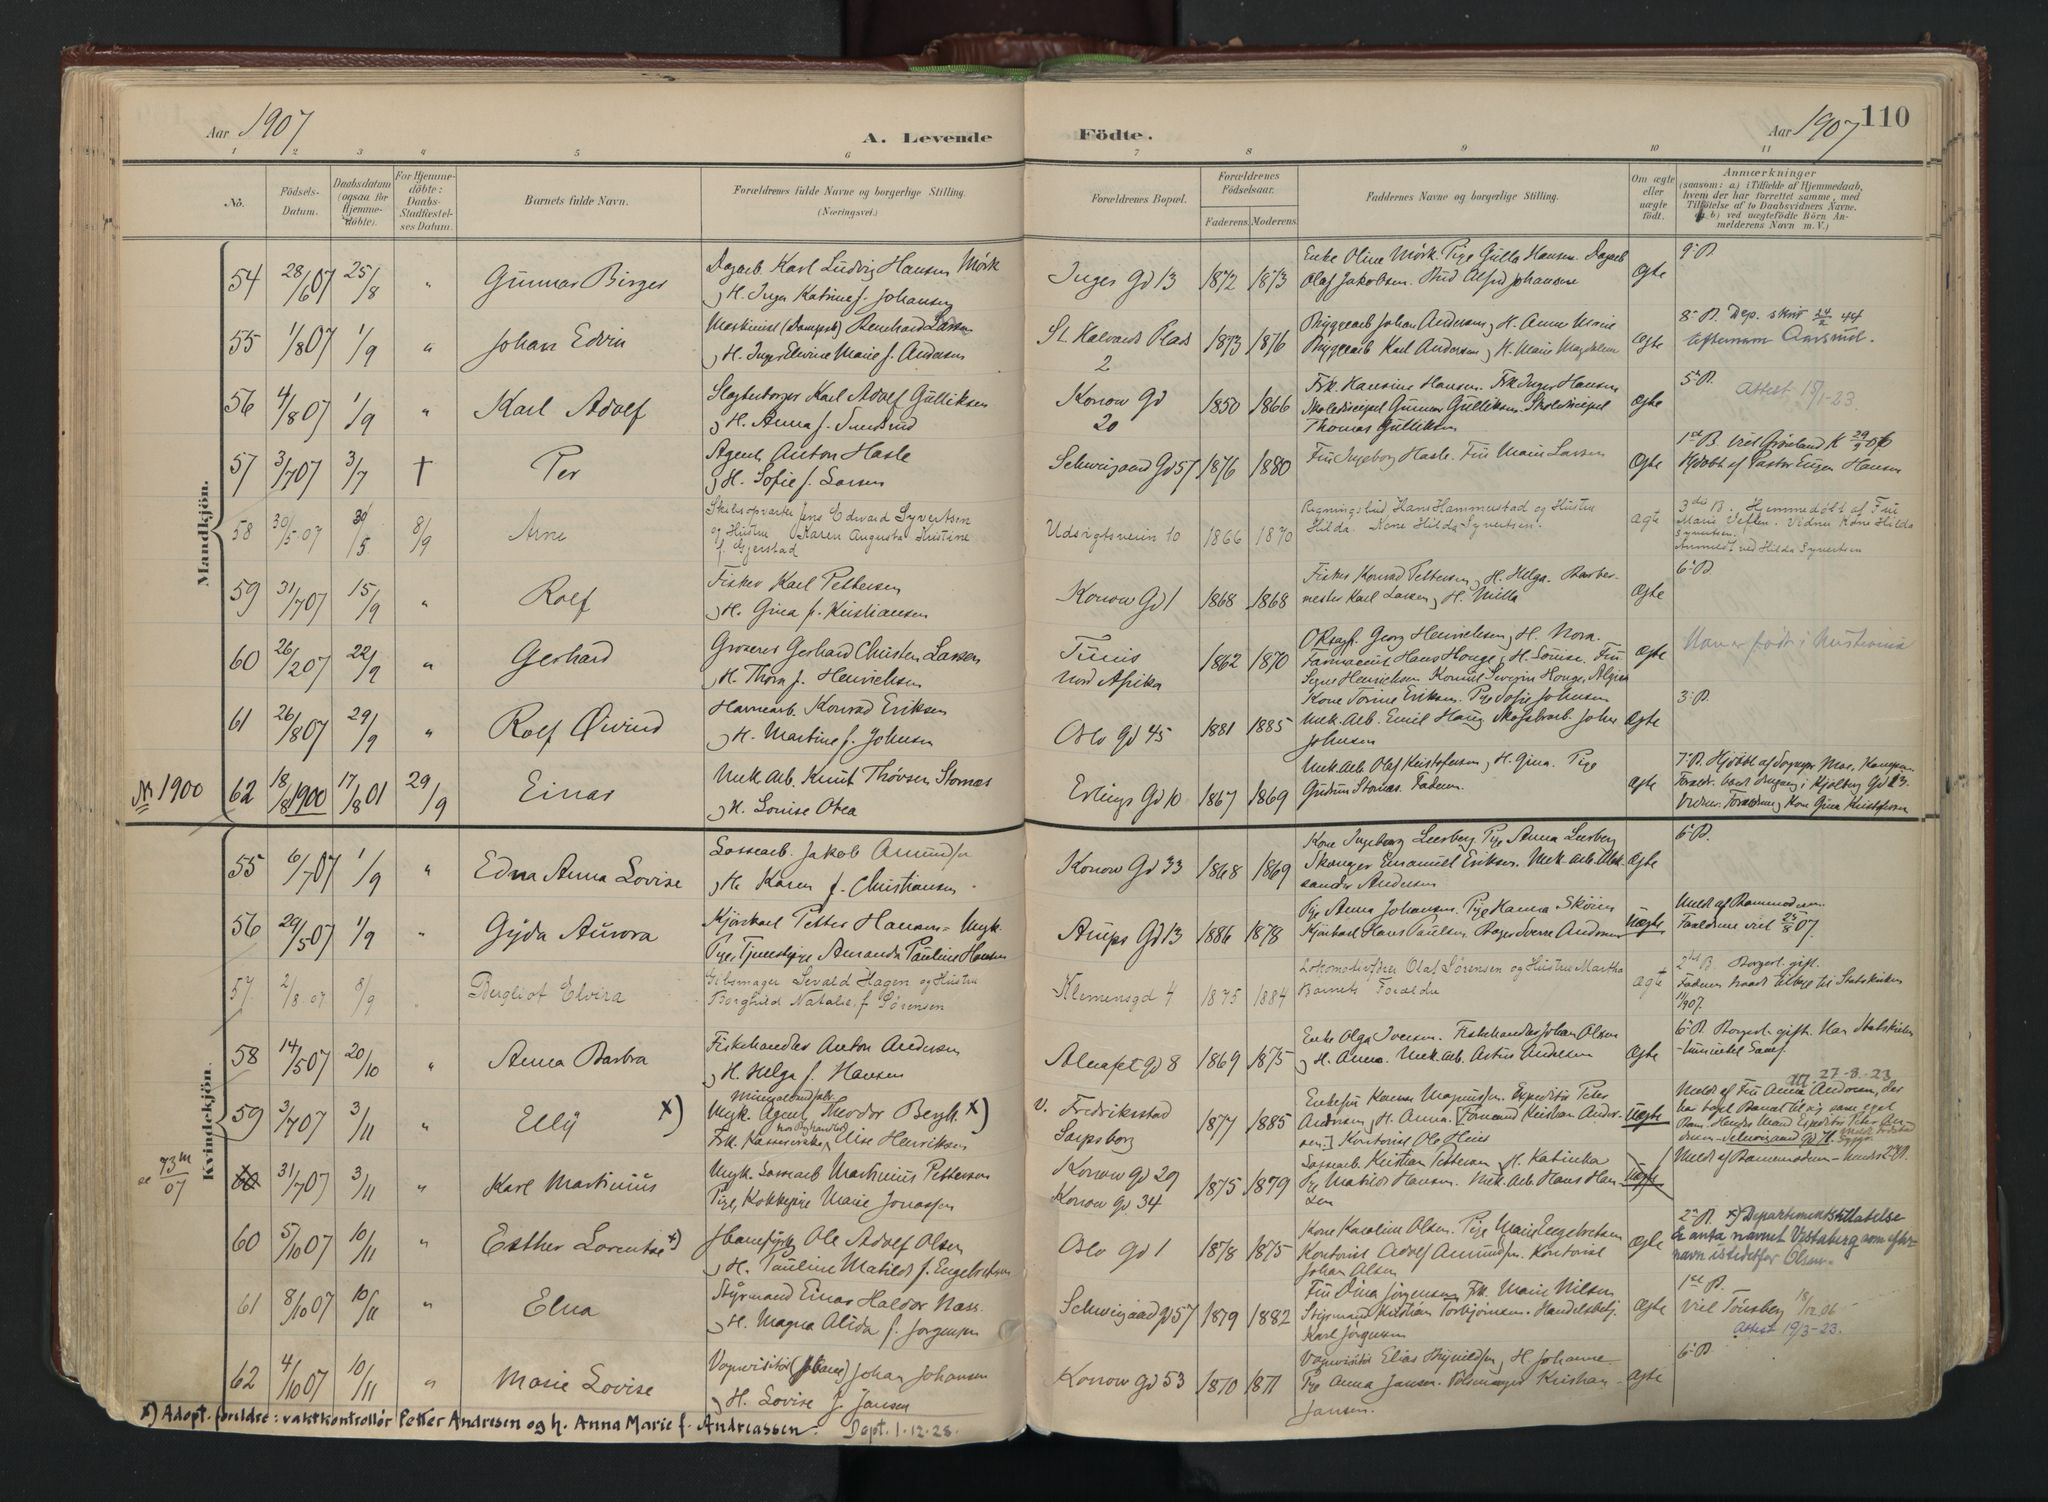 Aar 1907
A. Levende Födte.
Aar 1907 110
1 2 3 4 5 6 7 8 9 10 11
No.
Födsels-
Datum.
Daabsdatum
(ogsaa for
Hjemme-
döbte).
For Hjemme-
döbte:
Daabs-
Stadfæstel-
ses Datum.
Barnets fulde Navn.
Forældrenes fulde Navne og borgerlige Stilling.
(Næringsvei.)
Forældrenes Bopæl.
Forældrenes
Födselsaar.
Faderens. Moderens.
Faddernes Navne og borgerlige Stilling.
Om ægte
eller
uægte
födt.
Anmærkninger
(saasom: a.) i Tilfælde af Hjemmedaab,
hvem der har forrettet samme, med
Tilföielse af to Daabsvidners Navne.
b.) ved uægtefödte Börn An-
melderens Navn m. V.)
Mandkjön.
54 28/6 07 25/8 " Gunnar Birger
Dagarb. Karl Ludvig Hansen Mørk
og H. Inga Katrine f. Johansen
Inges Gd 13 1872 1873
Enke Oline Mørk. Pige Gulla Hansen. Dagarb
Olaf Jakobsen. Bud Alfred Johansen
Ægte 9de B.
55 1/8 07 1/9 " Johan Edvin
Maskinist (Dampsk) Bernhard Larsen
og H. Inger Elvine Marie f. Andersen
St. Halvards Plads
2
1873 1876
Bryggearb Johan Andersen og H. Anna Marie
Bryggearb Karl Andersen og H. Marie Magdalene
Ægte
8de B. Dep. skriv 24/2 44
Efternavn Aarsrud.
56 4/8 07 1/9 " Karl Adolf
Slagterborger Karl Adolf Gulliksen
og H. Anna f.
Konow Gd
20
1850 1866
Frk. Hansine Hansen. Frk Inger Hansen
Skoledisipel Gunnar Gulliksen. Skoledisipel
Thomas Gulliksen
Ægte 5te B.
Attest 15/1-23.
57 3/7 07 3/7 † Per
Agent Anton Hasle
og H. Sofie f. Larsen
Schweigaard Gd 57 1876 1880
Fru Ingeborg Hasle. Fru Marie Larsen
Ægte
1ste B. Viet Grønland K 29/9 06
Hjdøbt af Pastor Eugen Hansen
58 30/5 07 30/5 8/9 Arne
Skibsopvarter Jens Edward Syvertsen
og Hustru Karen Augusta Kristine
f. Gjerstad
Udsigtsveien 10 1866 1870
Bygningslus Hans Hammerstad og Hustru
Hilda. Kone Hilda Syvertsen.
ægte
3die B. Hjemmedøbt af Fru
Marie Veften. Vidner Kone Hilda
Syvertsen.
Anmeldt ved Hilda Syvertsen
59 31/7 07 15/9 " Rolf
Fisker Karl Pettersen
og H. Gina f. Kristiansen
Konow Gd 1 1868 1868
Fisker Konrad Pettersen og H. Helga. Barber-
mester Karl Larsen og H. Milla
Ægte 6te B.
60 26/2 07 22/9 " Gerhard
Grosserer Gerhard Christen Larsen
og H. Thora f. Henrichsen
Tunis
Nord Afrika
1862 1870
Georg Henrichsen og H. Nora.
Farmaceut Hans Houge og H. Louise. Fru
Signe Henrichsen. Konsul Severin Houge, Algier
Ægte
Han er født i Kristiania
61 26/8 07 29/9 " Rolf Øivind
Havnearb. Konrad Eriksen
og H. Martine f. Johnsen
Oslo Gd 45 1881 1885
Kone Torine Eriksen. Pige Sofie Johnsen
Mek. Arb. Emil Haug Skofabarb. Johan
Johnsen
Ægte 3die B.
№ 1900 62 18/8 1900 17/8 01 29/9 Einar
Mek Arb. Knut Thovsen Stornæs
og H. Louise Olea
Erlings Gd 10 1867 1869
Mek. Arb Olaf Kristofersen og H. Gina. Pige
Gudrun Stornæs. Faderen.
ægte
7de B. Hjdøbt af
i Kjølberg Gd 13.
Vidner. Forældrene og Kone Gina Kristofersen
Kvindekjön.
55 6/7 07 1/9 " Edna Anna Lovise
Lossearb. Jakob Amundsen
og H. Karen f. Christiansen
Konow Gd 33 1868 1869
Kone Ingeborg Leerberg. Pige Anna Leerberg
Emanuel Eriksen. Mek Arb. Alek-
sander Andersen
Ægte 6te B.
56 29/5 07 1/9 " Gyda Aurora
Kjørekarl Petter Hansen - Ungk.
Pige, Tjenestepige Amanda Pauline Hansen
Arups Gd 13 1886 1878
Pige Anna Johansen. Pige Hanna Skøien
Kjørekarl Hans Paulsen. Bager Sverre Andersen
Uægte
Meldt af Barnmoderen.
Forældrene viet 25/8 07.
57 2/8 07 8/9 Bergliot Elvira
Gibsmager Sevald Hagen og Hustru
Borghild Natalie f. Sørensen
Klemensgd 4 1875 1884
Lokomotivfører Olaf Sørensen og Hustru Martha
Barnets Forældre
ægte
2den B. Borgerl. gift.
Faderen traadt tilbage til Statskirken
11/9 07.
58 14/5 07 20/10 " Anna Barbra
Fiskehandler Anton Andersen
og H. Helga f. Hansen
Alnafet Gd 8 1869 1875
Enke Olga Iversen. Fiskehandler Johan Olsen
og H. Anna. Mek. Arb. Astrup Andersen
Ægte
6te B. Borgerl. gift. Han Statskirken
59 3/7 07 3/11 " Elly x)
Ungk. Agent Theodor Bergh. x)
Frk. Kassererske Alise Henriksen
v. Fredriksstad
Sarpsborg
1877 1885
Enkefru Karen Magnussen. Expeditør Peter
Andersen og H. Anna. [Formand Kristian Ander-
sen.] Kontorist Ole Heies
Uægte
27-8-23
Meldt af Fru Anna Andersen, der
har taget Barnet til sig som eget
Barn. Hendes Mand Expeditør Peter An-
dersen - Schweigaard Gd 71.
se 73m/07
60 31/7 07 3/11 " Karl Martinius
Ungk. Lossearb Martinius Pettersen
Pige, Kokkepige Marie Jonassen
Konow Gd 29
Konow Gd 34
1875 1879
Lossearb. Kristian Pettersen og H. Katinka
Pige Matilde Hansen. Mek. Arb Hans Han-
sen
Uægte
Meldt af Barnemoderen - hendes 2det B.
60 5/10 07 10/11 " Esther Lorentse x)
Ole Adolf Olsen
og H. Pauline Matilde f. Engebretsen
Oslo Gd 1 1878 1875
Kone Karoline Olsen. Pige Marie Engebretsen
Kontorist Adolf Amundsen. Kontorist
Johan Olsen
Ægte
2det B. x) Departementstilladelse
til anta navnet Vestaberg som efter-
navn istedetfor Olsen.
61 8/10 07 10/11 " Elna
Styrmand Einar Haldor Næss.
og H. Magna Alida f. Jørgensen
Schweigaard Gd 57 1879 1882
Fru Dina Jørgensen. Frk. Marie Nilsen
Styrmand Kristian Torbjørnsen. Handelsbetj.
Karl Jørgensen
Ægte
1ste B.
Viet Tønsberg 18/12 06
Attest 19/3-23.
62 4/10 07 10/11 " Marie Lovise
Vognvisitør Johan Johansen
og H. Lovise f. Jansen
Konow Gd 53 1870 1871
Vognvisitør Elias Brynildsen og H. Johanne.
Pige Anna Jansen. Pølsemager Kristian
Jansen.
Ægte 6te B.
x) Adopt. foreldre: vaktkontrollør Petter Andresen og h. Anna Marie f. Andreassen. Dept. 1.12.28.